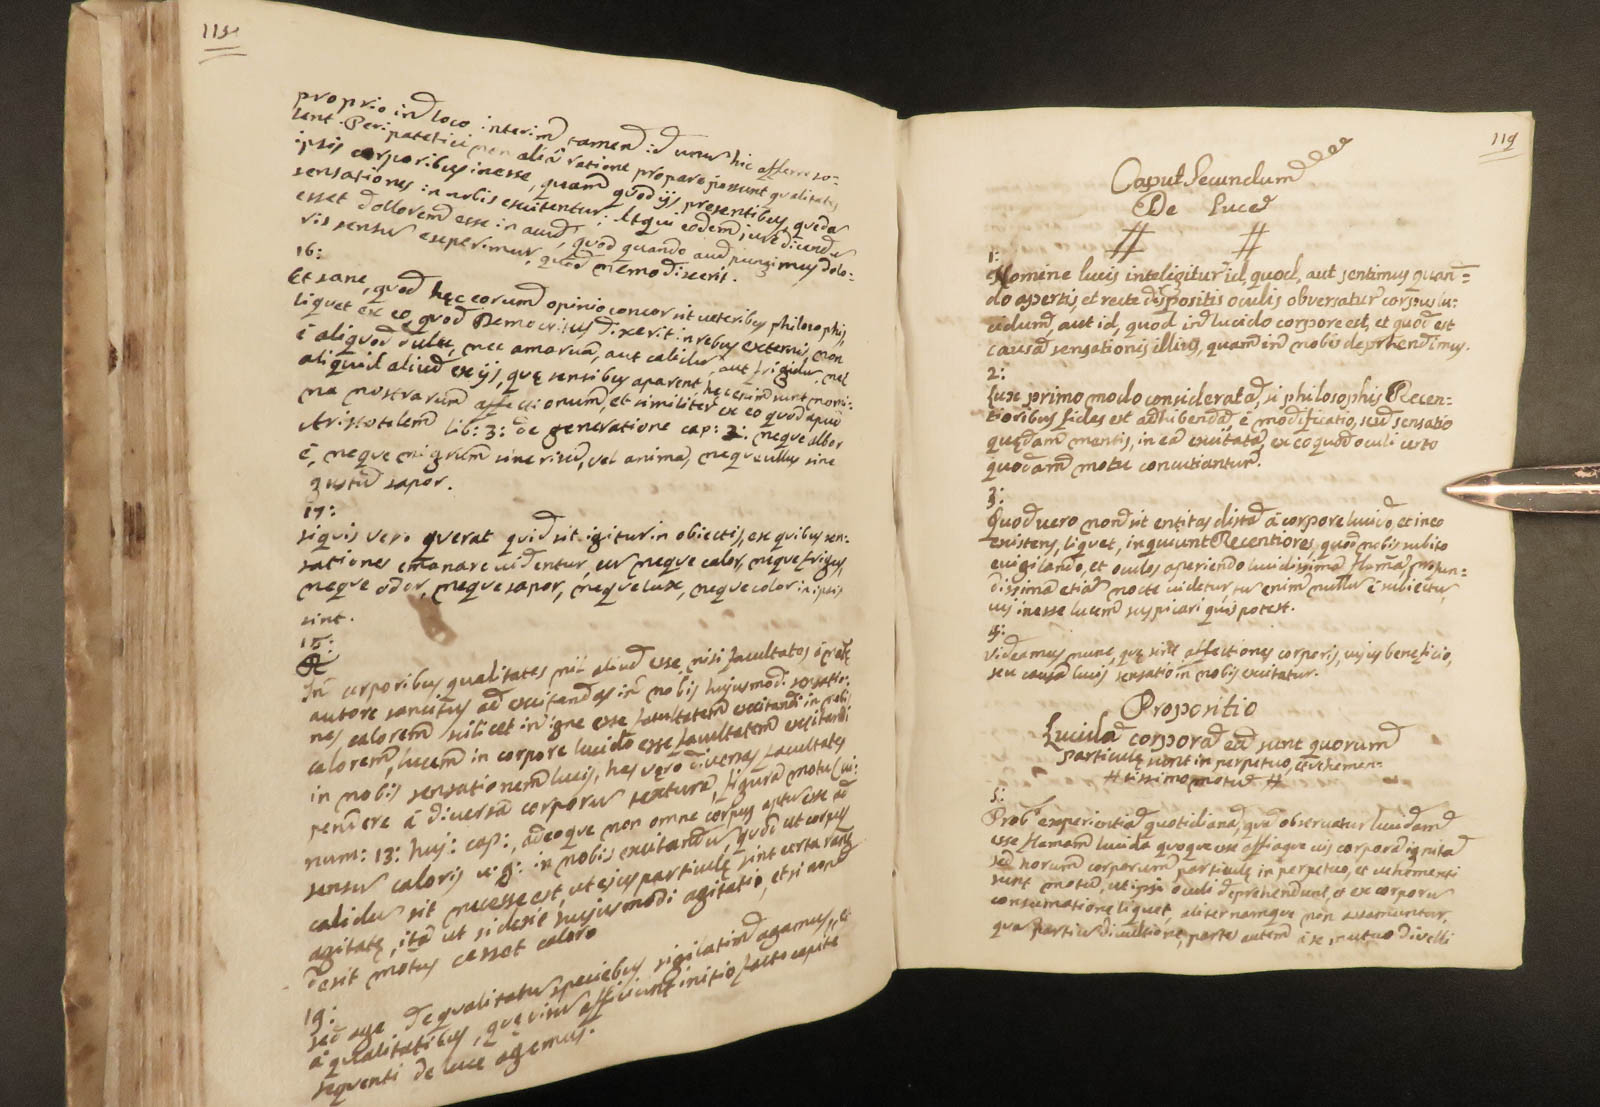 118
proprio in loco interim tamen id unum hic afferri so=
lent Peripatetici non alia ratione propare possunt qualitates
ipsis corporibus inesse, quam quod ijs presentibus, quedam
sensationes in nobis excitentur; Atqui eodem jure dicendum
esset dollorem esse in acu, quod quando acu pungimur dolo=
ris sensum experimur, quod nemo dixerit.
16:
Et sane, quod hęc eorum opinio concors sit ueteribus philosophis,
liquet ex eo, quod Democritus dixerit in rebus externis non
ē aliquod dulce, nec amarum, aut calidum, aut frigidum, nec
aliquid aliud ex ijs, quę sensibus aparent hęc enim sunt nomi=
na nostrarum affectionum, et similiter ex eo quod apud
Aristotelem lib: 3: de generatione cap: 2: neque albor
ē, neque nigrum sine risu, vel anima, neque ullus sine
gustu sapor.
17:
si quis vero querat quid sit igitur in obiectis, ex quibus sen=
sationes emanare uidentur, cur neque calor, neque frigus,
neque odor, neque sapor, neque lux, neque color in ipsis
sint.
18:
R
In corporibus qualitates nil aliud esse nisi facultates
autore sancitus ad excitandas in nobis hujusmodi sensatio=
nes calorem scilicet in igne esse facultatem excitandi in nobis
calorem, lucem in corpore lucido esse facultatem excitandi
in nobis sensationem lucis, has vero diversas facultates
pendere á diversa corporum textura, figura motu (ui:
num: 13: huj: cap:, adeoque non omne corpus aptum esse ad
sensum caloris v: g: in nobis excitandum, quod ut corpus
calidum sit necesse est, ut ejus particulę sint certa ratione
agitatę, ita ut si desit hujusmodi agitatio, et si non
desit motus cesset calor.
19:
sed age de qualitatum speciebus sigilatim agamus, et
a qualitatibus, quę visum afficiunt initio facto capite
sequenti de luce agemus.
119
Caput Secundum
De Luce
# #
1:
Nomine lucis inteligitur id, quod, aut sentimus quan=
do apertis, et recte dispositis oculis obversatur corpus lu:
cidum, aut id, quod in lucido corpore est, et quod est
causa sensationis illius, quam in nobis deprhendimus.
2:
Lux primo modo considerata, si philosophis Recen=
tioribus fides est adhibenda, ē modificatio, seu sensatio
quędam mentis, in ea excitata, ex eo quod oculi certo
quodam motu concutiantur.
3:
Quod uero non sit entitas dista á corpore lucido, et in eo
existens, liquet, inquiunt Recentiores, quod nobis subito
euigilando, et oculos aperiendo lucidissima flama, profun=
dissima etiam nocte uidetur, tum enim nullum ē subiectum,
cui inesse lucem suspicari quis potest.
4:
Videamus nunc, quę sint affectiones corporis, cujus beneficio,
seu causa lucis sensatio in nobis excitatur.
Propositio
Lucida corpora ea sunt quorum
particulę sunt in perpetuo, et uehemen=
# tissimo motu #
5:
Prob: experientia quotidiana, qua observatur lucidam
esse flamam lucida quoque esse corpora ignita
sed horum corporum particulę in perpetuo, et uehementi
sunt motu, ut ipsi oculi deprehendunt, et ex corporum
consumatione liquet, aliter nameque non
qua partium diuultione, partes autem á se inuicem diuelli